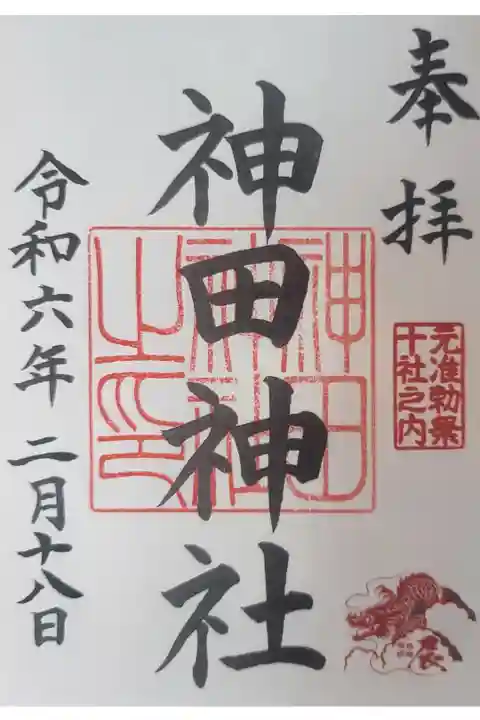 奉拝
元准勅祭
十社之内
神田神社
神田
神社
之印
令和六年二月十八日
辰